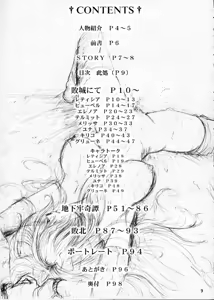 † CONTENTS †
人物紹介 P4~5
前書 P6
STORY P7~8
目次 此処(P9)
敗城にて P10~
レティシア P10~13
ピューベル P14~17
エレノア P20~23
テルミット P24~29
メリッサ P30~33
ユナ P34~37
キリコ P40~43
グリューネ P44~47
キャラトーク
レティシア P18
ピューベル P18
エレノア P19
テルミット P29
メリッサ P38
ユナ P38
キリコ P48
グリューネ P49
地下牢奇譚 P51~86
敗北 P87~93
ポートレート P94
あとがき P96
奥付 P98
9